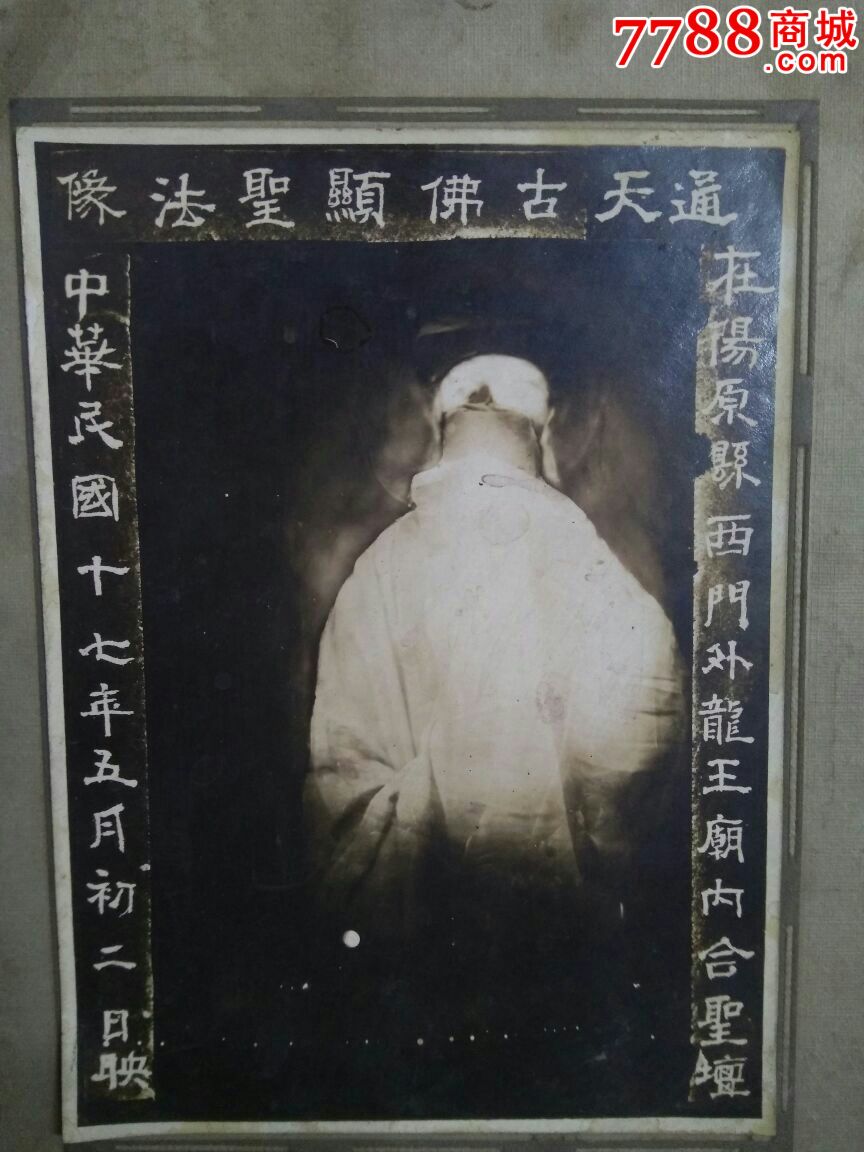 7788商城
.com
通天古佛顯聖法像
在陽原縣西門外龍王廟內合聖壇
中華民國十七年五月初二日映